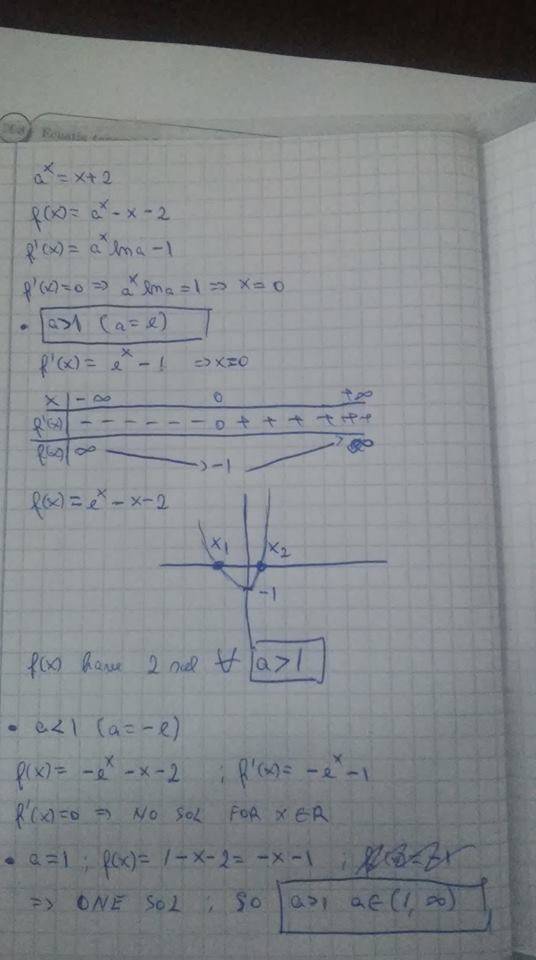 a^x = x+2
f(x) = a^x - x - 2
f'(x) = a^x ln a - 1
f'(x)=0 => a^x ln a = 1 => x = 0
• a>1 (a = e)
f'(x) = e^x - 1 => x=0
x | -∞ 0 +∞
f'(x) | - - - - - - 0 + + + + + +
f(x) | ∞ -1 ∞
f(x) = e^x - x - 2
x1 x2
-1
f(x) have 2 sol ∀ a>1
• a<1 (a = -e)
f(x) = -e^x - x - 2 ; f'(x) = -e^x - 1
f'(x)=0 => NO SOL FOR x∈R
• a=1 ; f(x) = 1-x-2 = -x-1 ;
=> ONE SOL ; SO a>1 a∈(1, ∞)